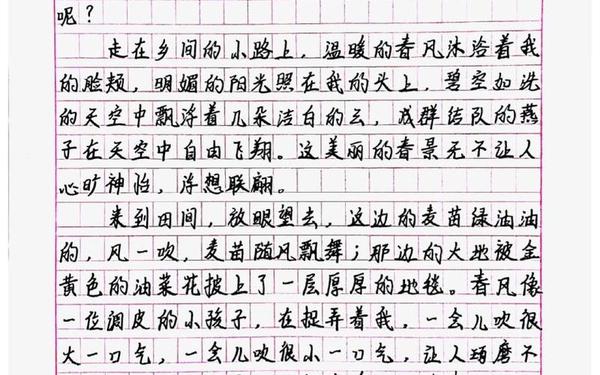 呢?
走在乡间的小路上,温暖的春风沐浴着我
的脸颊,明媚的阳光照在我的头上,碧空如洗
的天空中飘浮着几朵洁白的云,成群结队的燕
子在天空中自由飞翔。这美丽的春景无不让人
心旷神怡,浮想联翩。
来到田间,放眼望去,这边的麦苗绿油油
的,风一吹,麦苗随风飘舞;那边的大地被金
黄色的油菜花披上了一层厚厚的地毯。春风像
一位调皮的小孩子,在捉弄着我,一会儿吹很
大一口气,一会儿吹很小一口气,让人琢磨不